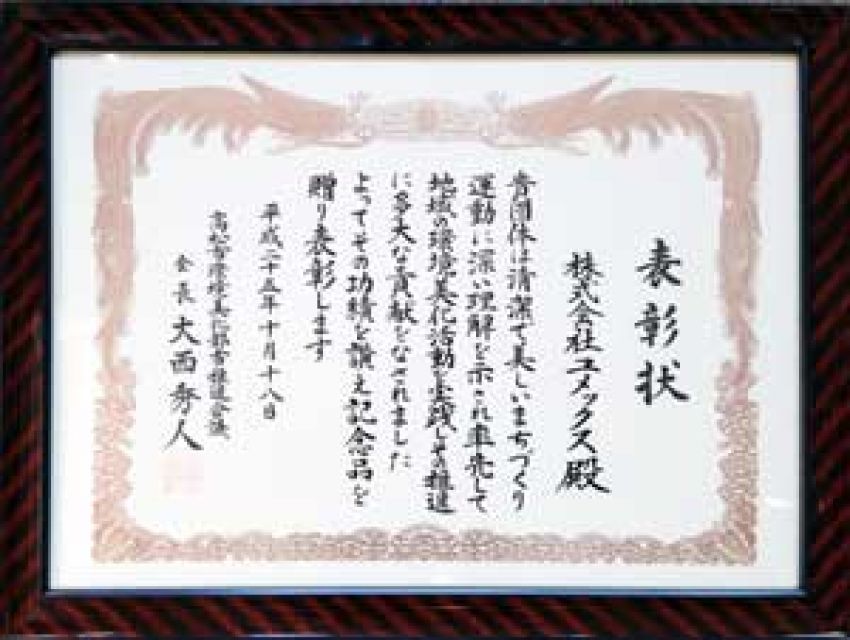 表彰状
株式会社ユメックス殿
貴団体は清潔で美しいまちづくり
運動に深い理解を示され率先して
地域の環境美化活動を実践しその推進
に多大な貢献をなされました
よってその功績を讃え記念品を
贈り表彰します
平成二十五年十月十八日
高松市環境美化都市推進会議
会長 大西秀人